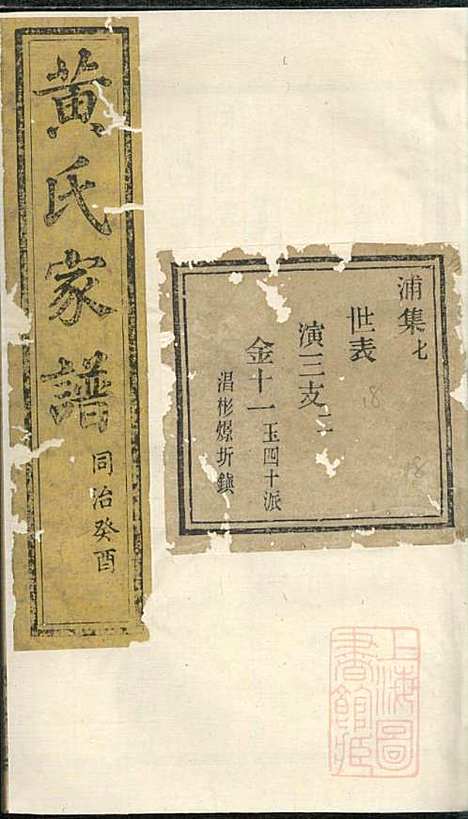 黄氏家譜
同治癸酉
浦集七
世表
演三支二
金十一玉四十派
淐彬爆圻鎮
18
18
上海圖
書館藏